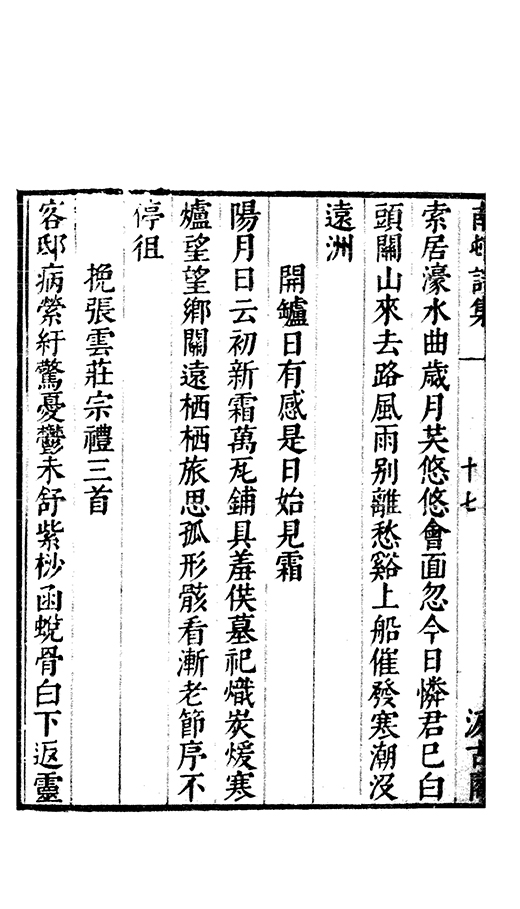 索居濠水曲歲月苂悠悠會面忽今日憐君已白
頭關山來去路風雨别離愁谿上船催發寒潮没
遠洲
開鑪日有感是日始見霜
陽月日云初新霜萬瓦鋪具羞供墓祀熾炭煖寒
爐望望鄉關遠栖栖旅思孤形骸看漸老節序不
停徂
挽張雲莊宗禮三首
客邸病縈紆驚憂鬱未舒紫杪函蜕骨白下返靈
十七